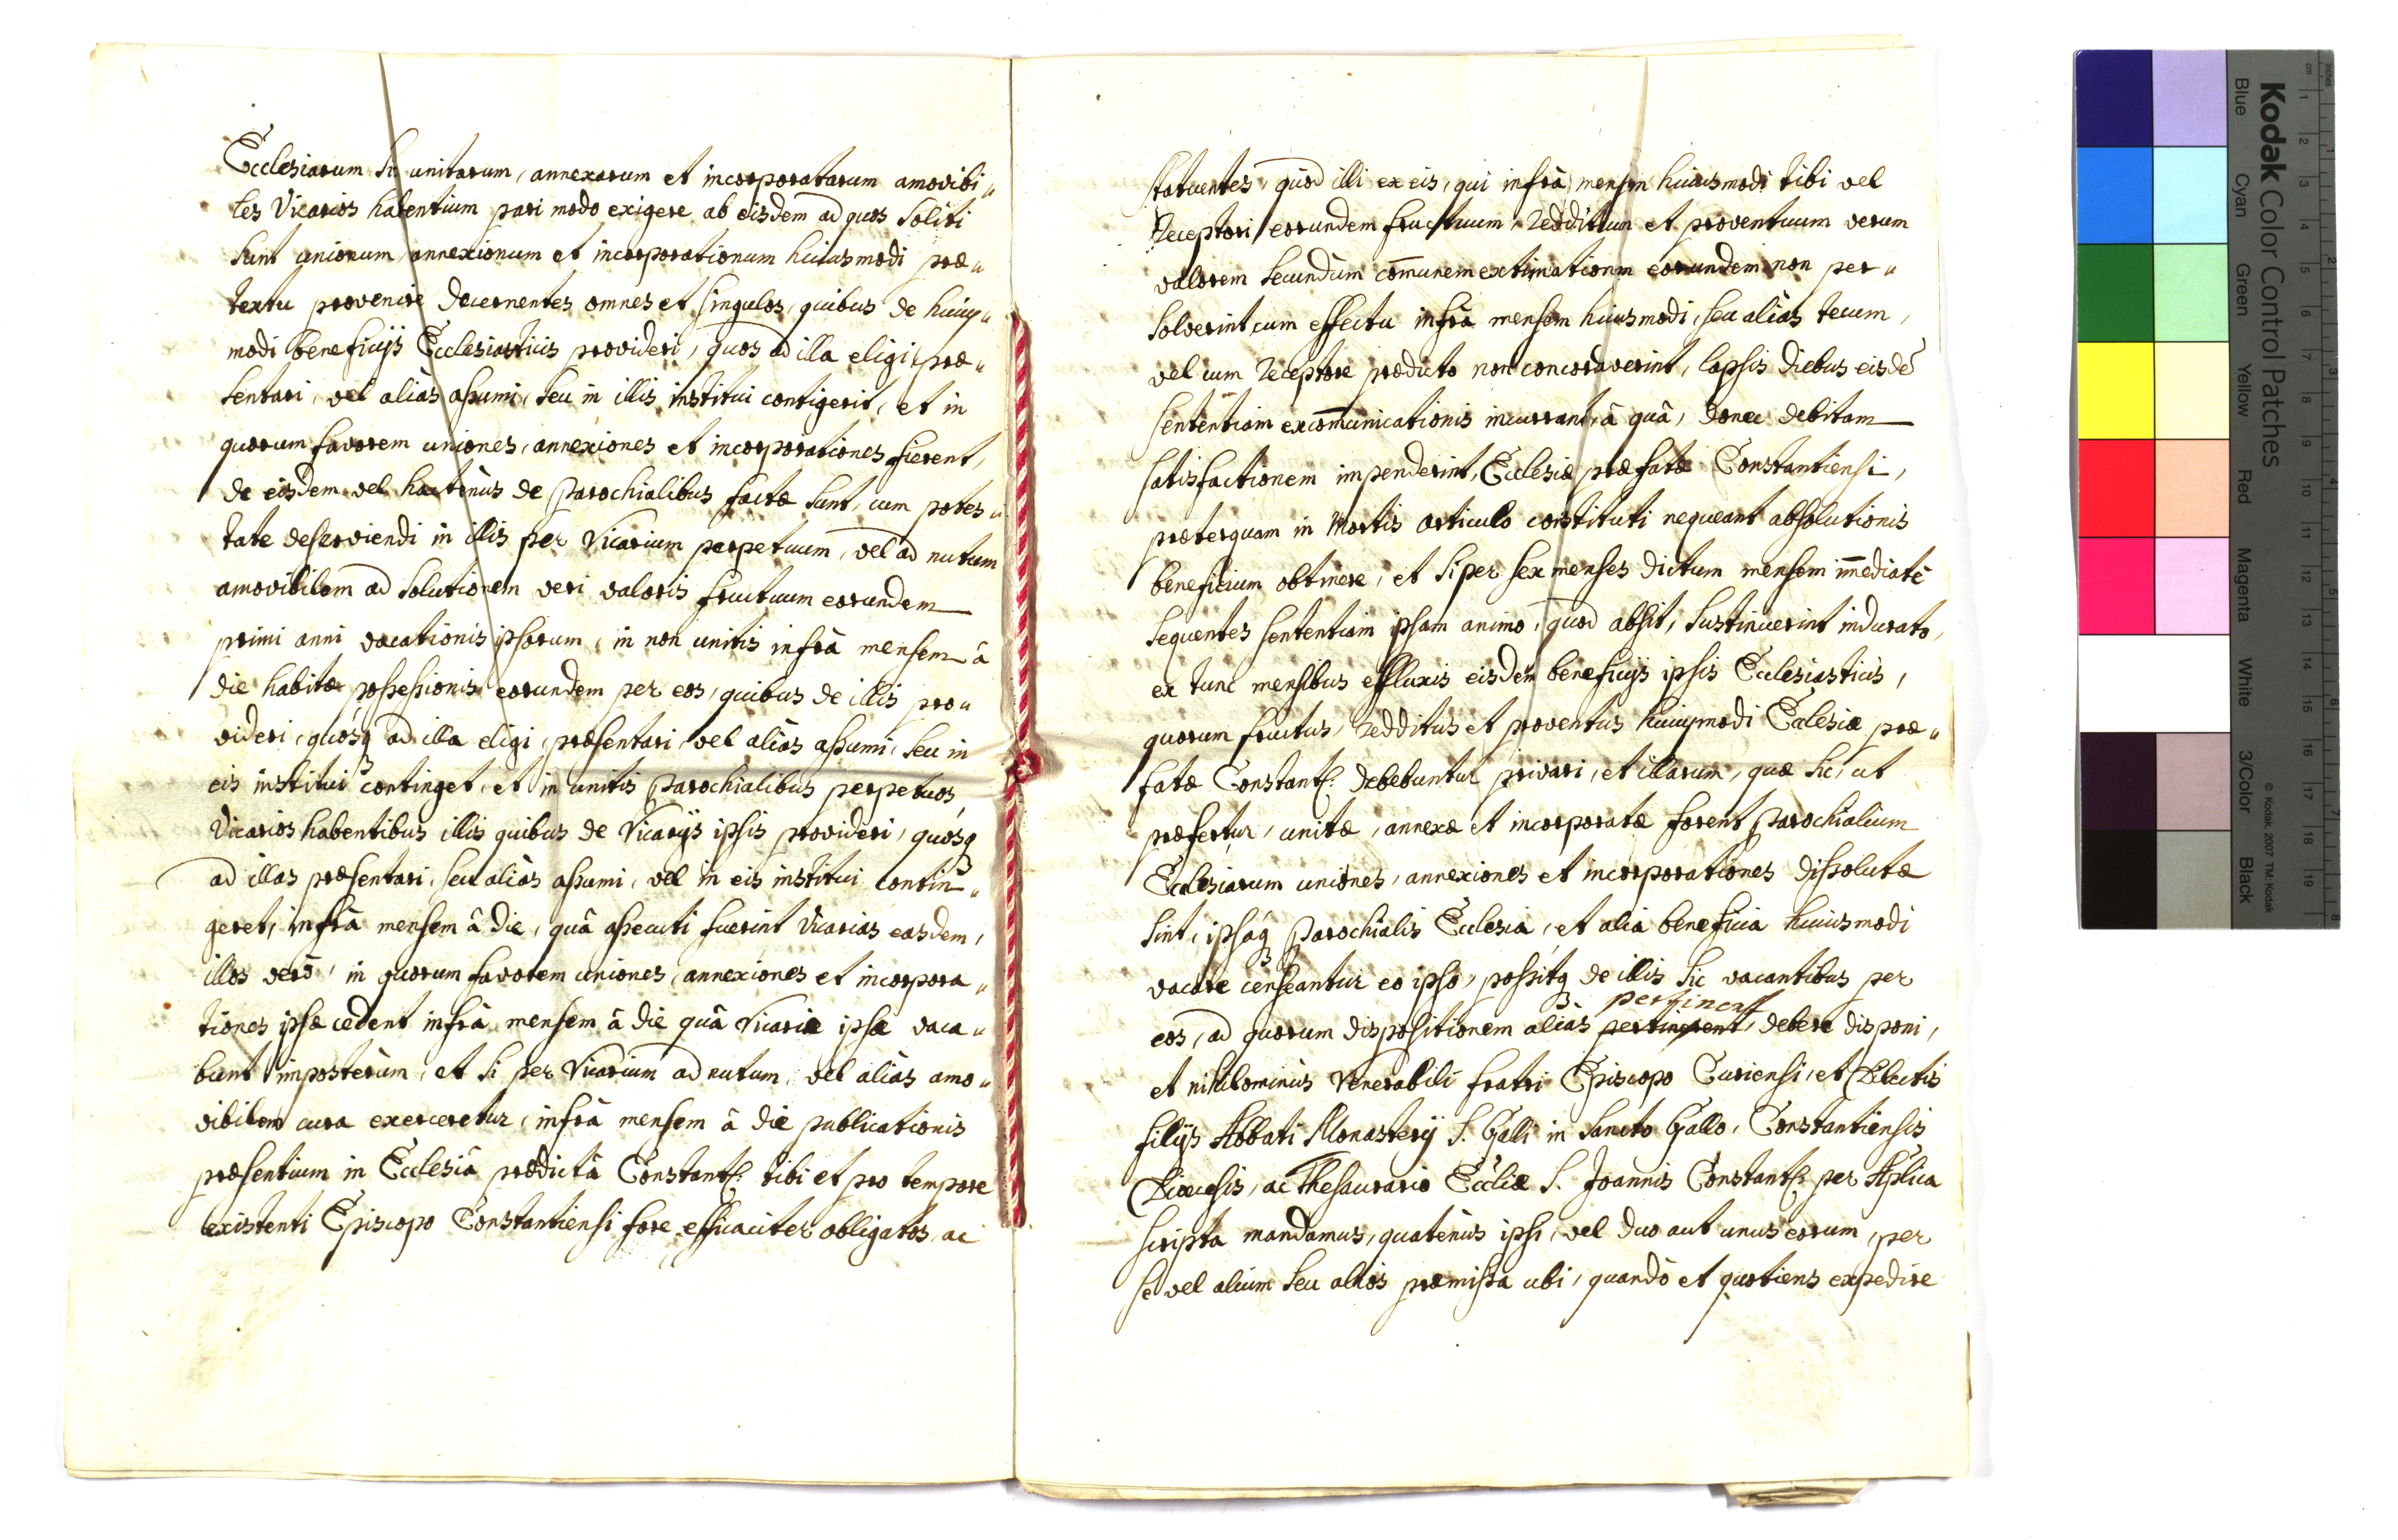 Ecclesiarum sic unitarum, annexarum et incorporatarum amovibi„
les Vicarios habentium pari modo exigere ab eisdem ad quos soliti
sunt unionum, annexionum et incorporationum huiusmodi præ„
textu provenire decernentes omnes et singulos, quibus de huiuṣ„
modi beneficijs Ecclesiasticis provideri, quos ad illa eligi, præ„
sentari, vel aliàs assumi, seu in illis institui contigerit, et in
quorum favorem uniones, annexiones et incorporationes fierent,
de eisdem vel hactenùs de Parochialibus factæ sunt, cum potes„
tate deserviendi in illis per Vicarium perpetuum, vel ad nutum
amovibilem ad solutionem veri valoris fructuum eorundem
primi anni vacationis ipsorum, in non unitis infrà mensem à
die habitæ possessionis eorundem per eos, quibus de illis pro„
videri, quósq ad illa eligi, præsentari vel aliàs assumi, seu in
eis institui continget, et in unitis Parochialibus perpetuos
Vicarios habentibus illis quibus de Vicarijs ipsis provideri, quósq
ad illas præsentari, seu aliàs assumi, vel in eis institui contin„
geret, infrà mensem â die, quâ assecuti fuerint Vicarias easdem,
illos verò, in quorum favorem uniones, annexiones et incorpora„
tiones ipsæ cedent infrà mensem â die quâ Vicariæ ipsæ vaca„
bunt imposterùm, et si per Vicarium ad nutum, vel aliàs amo„
vibilem cura exerceretur, infrà mensem â die publicationis
præsentium in Ecclesiâ prædictâ Constant: tibi et pro tempore
existenti Episcopo Constantiensi fore efficaciter obligatos, ac
statuentes, quòd illi ex eis, qui infrà mensem huiusmodi tibi vel
Receptori eorundem fructuum, redditum et proventuum verum
valorem secundùm com̄unem extimationem eorundem non per„
solverint cum effectu infrà mensem huiusmodi, seu aliàs tecum,
vel cum receptore prædicto non concordaverint, lapsis diebus eisdē
sententiam excom̄unicationis incurrant, â quâ, donec debitam
satisfactionem impenderint, Ecclesiæ præfatæ Constantiensi,
præterquam in mortis articulo constituti nequeant absolutionis
beneficium obtinere, et si per sex menses dictum mensem im̄ediatè
sequentes sententiam ipsam animo, quod absit, sustinuerint indurato,
ex tunc mensibus effluxis eisdem beneficijs ipsis Ecclesiasticis,
quorum fructus, redditus et proventus huiuṣmodi Ecclesiæ præ„
fatæ Constant: debebuntur privari, et illarum, quæ sic, ut
præfertur, unitæ, annexæ et incorporatæ forent Parochialium
Ecclesiarum uniones, annexiones et incorporationes dissolutæ
sint, ipsáq Parochialis Ecclesia, et alia beneficia huiusmodi
vacare censeantur eo ipso, possítq de illis sic vacantibus per
pertinent
eos, ad quorum dispositionem aliàs pertinerent, debere disponi,
et nihilominùs Venerabili fratri Episcopo Curiensi, et Dilectis
filijs Abbati Monasterij S. Gali in Sancto Gallo, Constantiensis
Diœcesis, ac Thesaurario Eccliæ S. Joannis Constant: per Aplica
scripta mandamus, quatenùs ipsi, vel duo aut unus eorum, per
se vel alium seu alios præmissa ubi, quandò et quotiens expedire